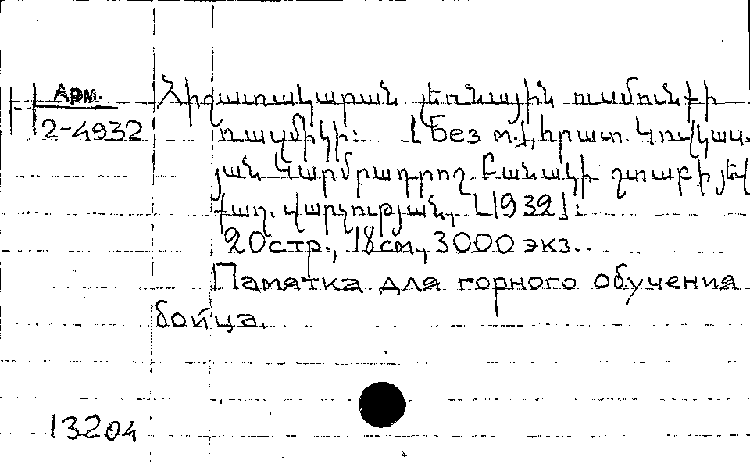 Арм.
2-4932
Հիշատակարան լեռնային ուսման
ռազմիկի: [Без м.], հրատ. Կովկաս.
յան Կարմրադրոշ Բանակի շտաբի յեվ
քաղ. վարչության, [1932]:
20 стр., 18 см., 3000 экз..
Памятка для горного обучения
бойца.
13204